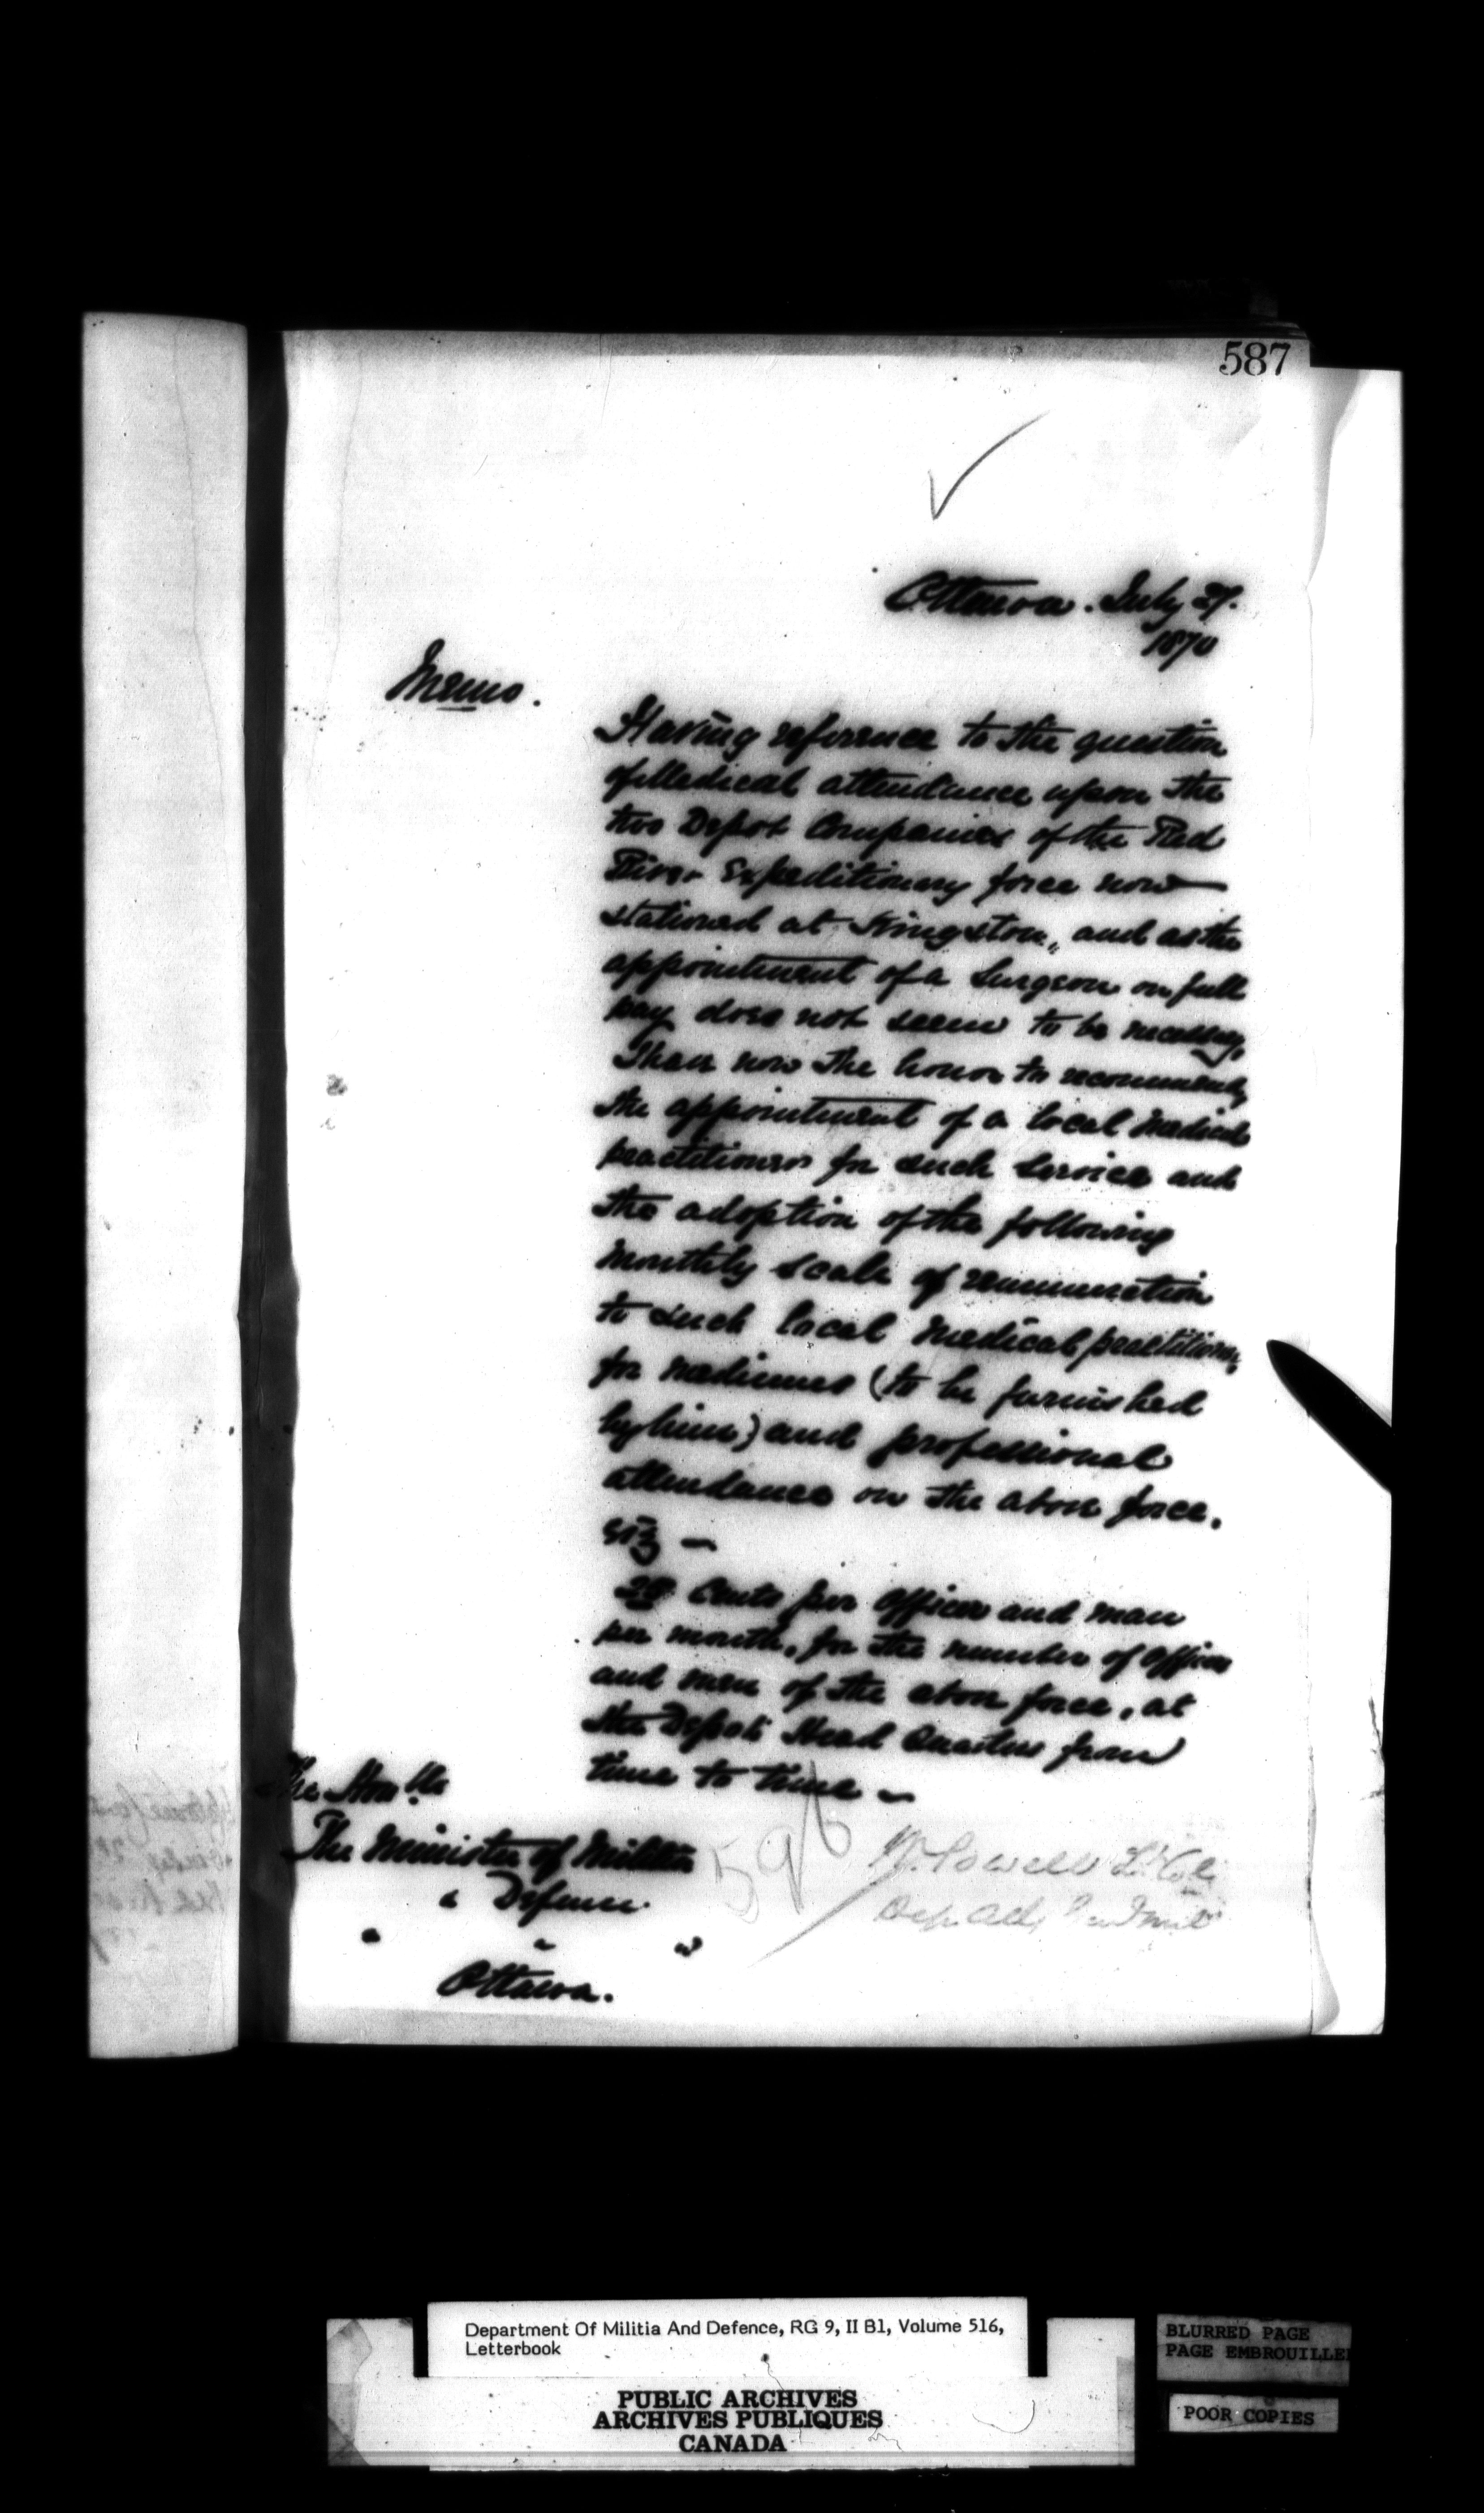 587
Ottawa. July 27.
1870
Memo.
Having reference to the question
of Medical attendance upon the
two Depot Companies of the Red
River Expeditionary force now
stationed at Kingston, and as the
appointment of a Surgeon on full
pay does not seem to be necessary,
I have now the honor to recommend,
the appointment of a local medical
practitioner for such service and
the adoption of the following
monthly scale of remuneration
to such local medical practitioner,
for medicines (to be furnished
by him) and professional
attendance on the above force.
viz –
Cents per Officer and man
per month, for the number of Officers
and men of the above force, at
the Depot Head Quarters from
time to time –
The Honble
The Minister of Militia
& Defence
Ottawa.
596
W. Powell Lt Col
Dep. Adj. Genl
Department Of Militia And Defence, RG 9, II B1, Volume 516,
Letterbook
PUBLIC ARCHIVES
ARCHIVES PUBLIQUES
CANADA
BLURRED PAGE
PAGE EMBROUILLE
POOR COPIES